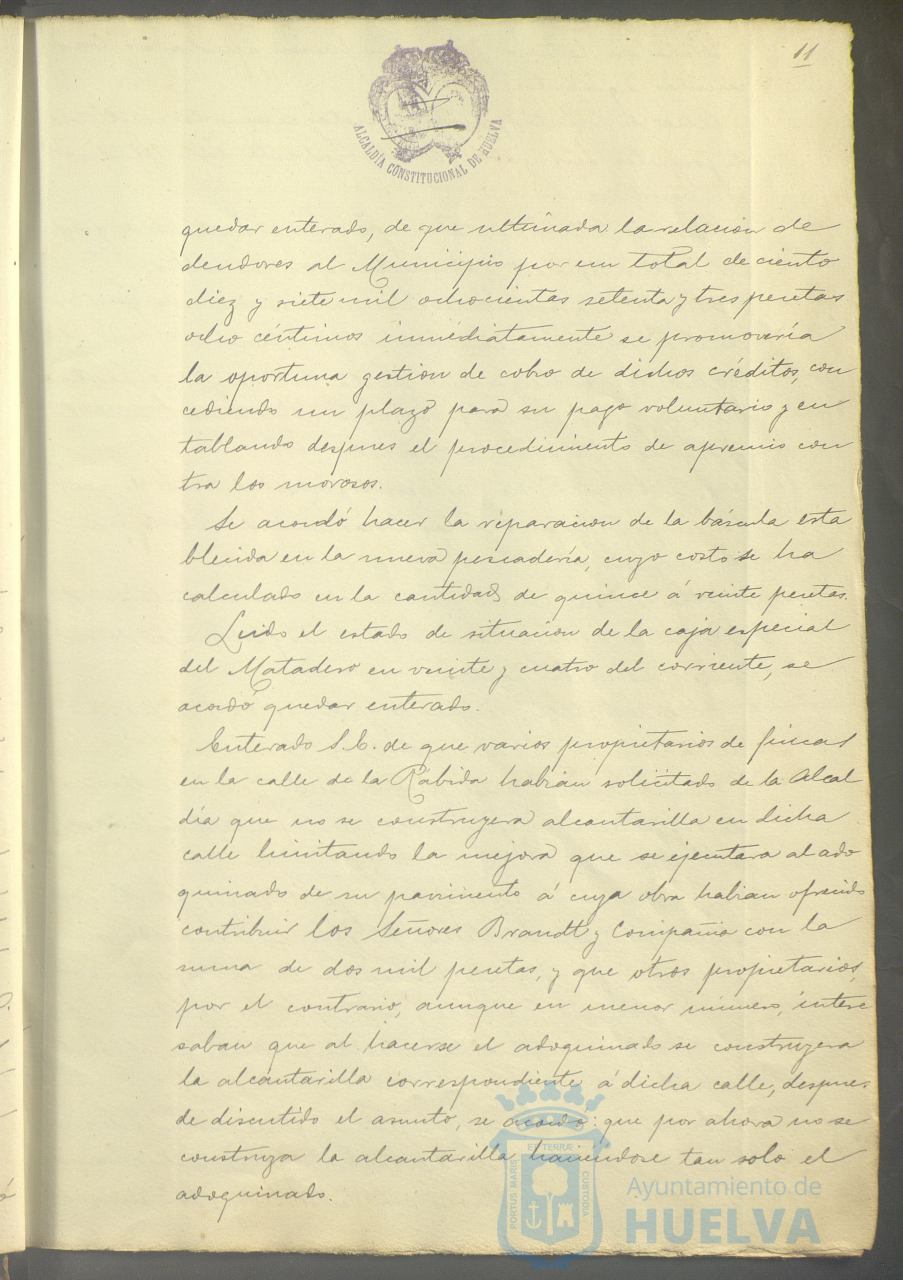 11
ALCALDÍA CONSTITUCIONAL DE HUELVA
quedar enterado, de que ultimada la relacion de
deudores al Municipio por un total de ciento
diez y siete mil ochocientas setenta y tres pesetas
ocho céntimos inmediatamente se promovería
la oportuna gestion de cobro de dichos créditos, con
cediendo un plazo para su pago voluntario y en
tablando despues el procedimiento de apremio con
tra los morosos.
Se acordó hacer la reparacion de la báscula esta
blecida en la nueva pescadería, cuyo costo se ha
calculado en la cantidad de quince á veinte pesetas.
Leido el estado de situacion de la caja especial
del Matadero en veinte y cuatro del corriente, se
acordó quedar enterado.
Enterado S.E. de que varios propietarios de fincas
en la calle de la Rábida habian solicitado de la Alcal
día que no se construyera alcantarilla en dicha
calle limitando la mejora que se ejecutara al ado
quinado de su pavimento á cuya obra habian ofrecido
contribuir los Señores Brandt y Compañia con la
suma de dos mil pesetas, y que otros propietarios,
por el contrario, aunque en menor número, intere
saban que al hacerse el adoquinado se construyera
la alcantarilla correspondiente á dicha calle, despues
de discutido el asunto, se acordó: que por ahora no se
construya la alcantarilla haciendose tan solo el
adoquinado.
PORTUS MARIS ET TERRÆ CUSTODIA
Ayuntamiento de
HUELVA